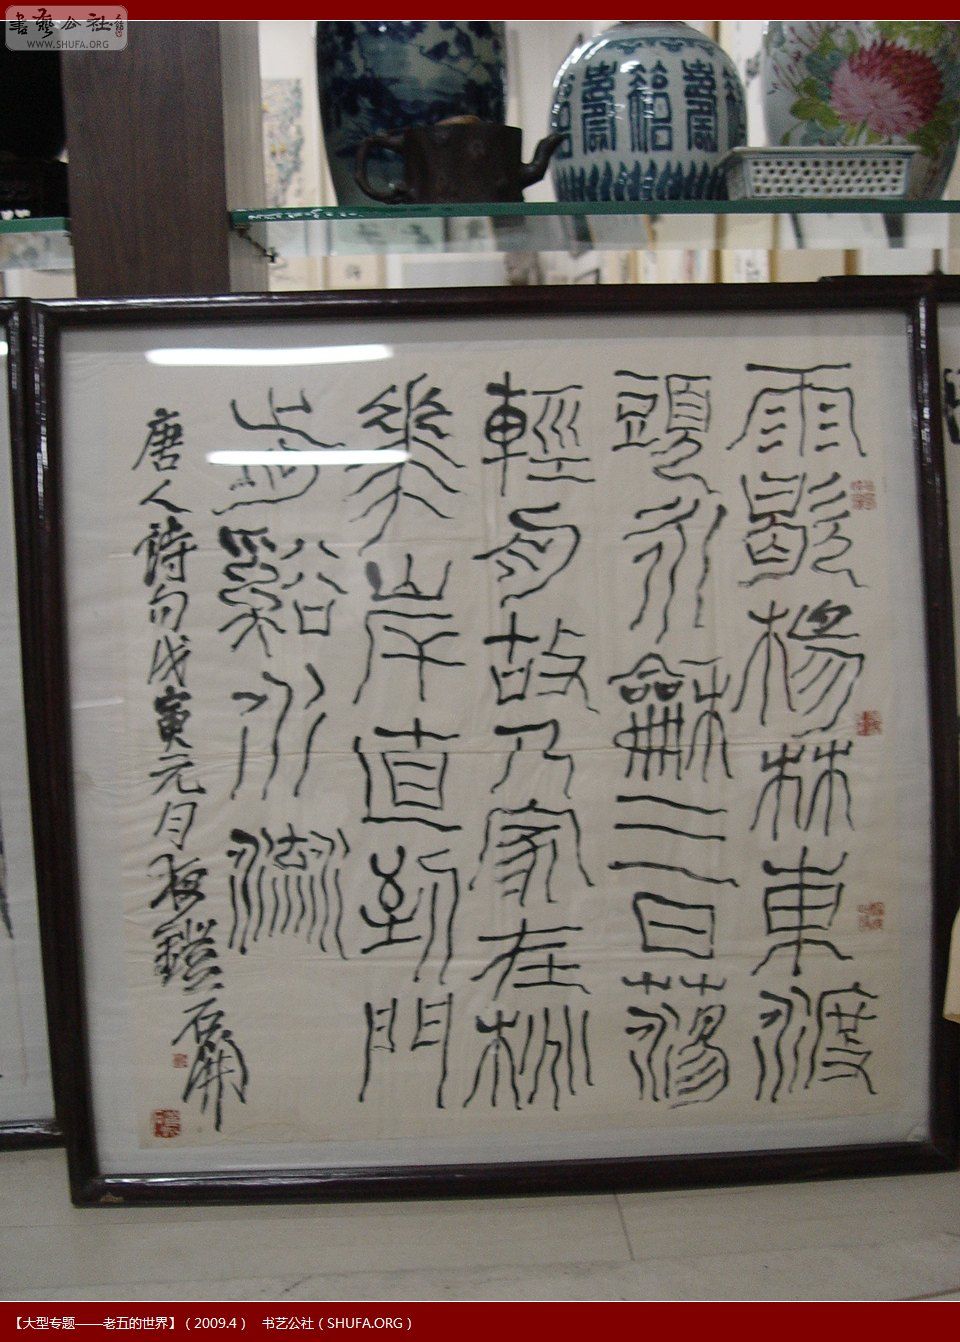 書藝公社
WWW.SHUFA.ORG
雨歇楊林東渡
頭永龢三日蕩
輕舟故乃家在桃
花岸直到門
前谿水流
唐人詩句戊寅元月石開
【大型专题——老五的世界】（2009.4） 书艺公社（SHUFA.ORG）